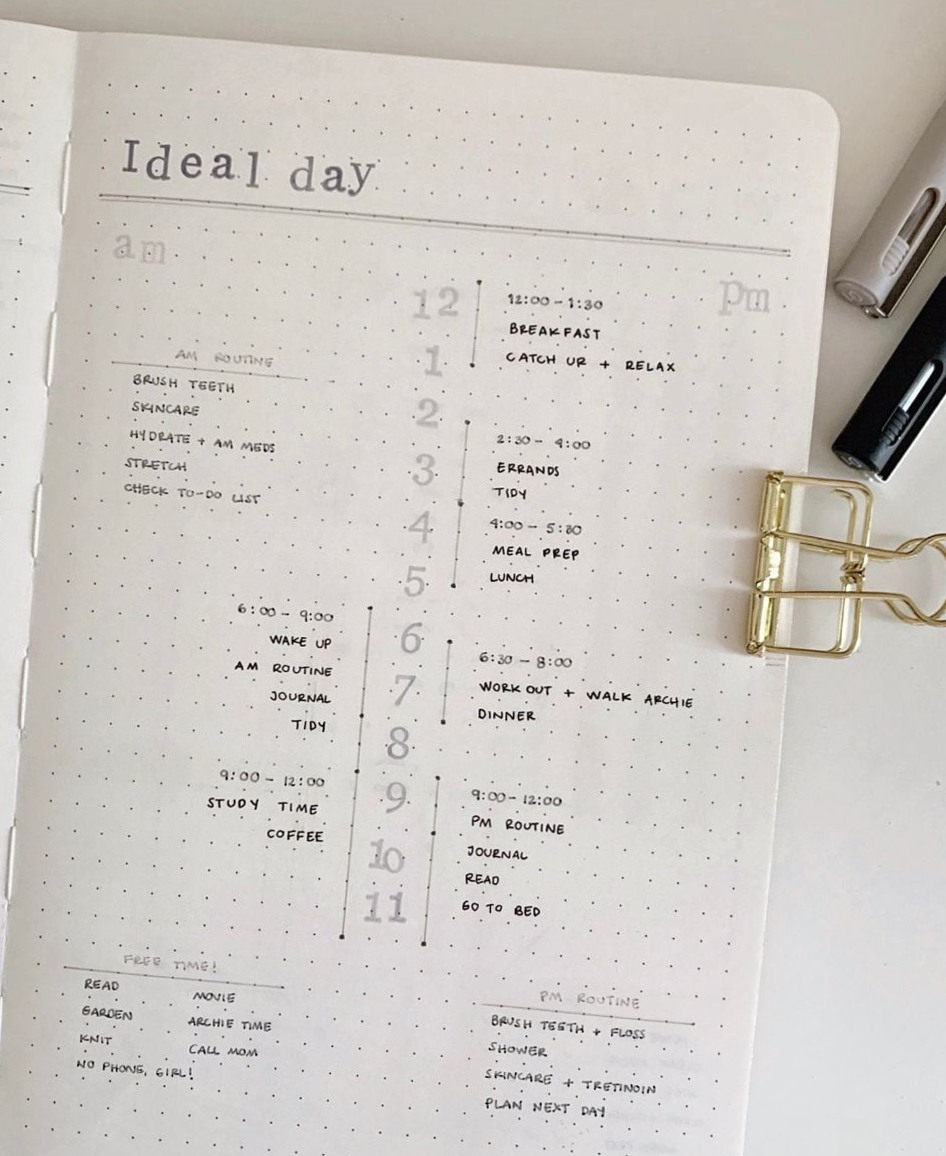 Ideal day
am
pm
12
1
2
3
4
5
6
7
8
9
10
11
AM ROUTINE
BRUSH TEETH
SKINCARE
HYDRATE + AM MEDS
STRETCH
CHECK TO-DO LIST
6:00 - 9:00
WAKE UP
AM ROUTINE
JOURNAL
TIDY
9:00 - 12:00
STUDY TIME
COFFEE
12:00 - 1:30
BREAKFAST
CATCH UP + RELAX
2:30 - 4:00
ERRANDS
TIDY
4:00 - 5:30
MEAL PREP
LUNCH
6:30 - 8:00
WORK OUT + WALK ARCHIE
DINNER
9:00 - 12:00
PM ROUTINE
JOURNAL
READ
GO TO BED
FREE TIME!
READ
GARDEN
KNIT
NO PHONE, GIRL!
MOVIE
ARCHIE TIME
CALL MOM
PM ROUTINE
BRUSH TEETH + FLOSS
SHOWER
SKINCARE + TRETINOIN
PLAN NEXT DAY